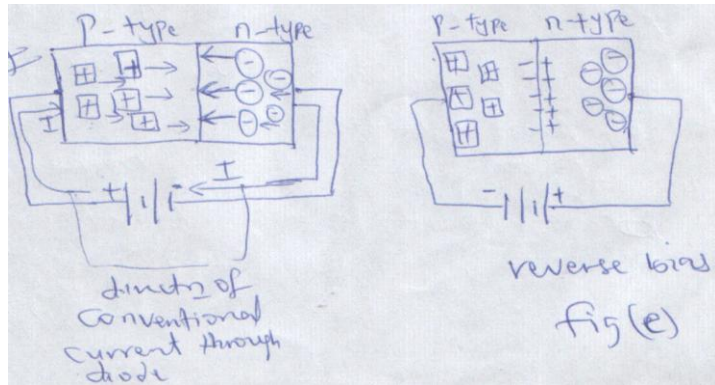 P-type n-type
I
+ - I
direction of
conventional
current through
diode
P-type n-type
- +
reverse bias
fig(e)